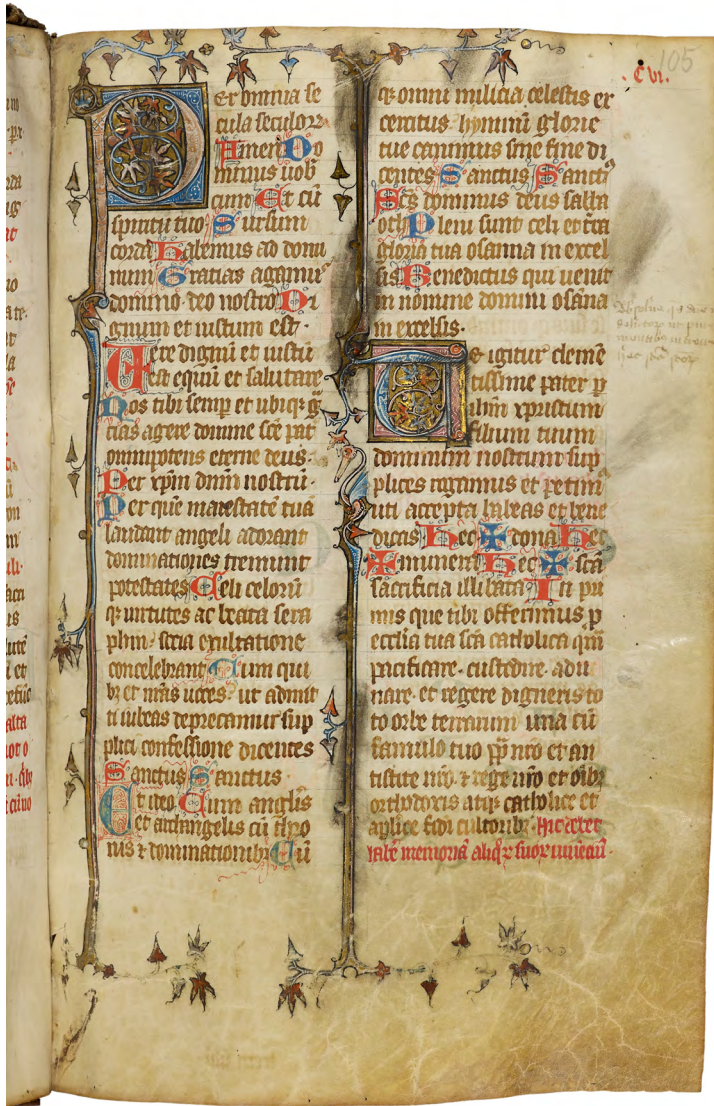 105
. C vi.
Per omnia se
cula seculoꝝ
Amen Do
minus uob
cum Et cū
spiritu tuo Sursum
corda Habemus ad domi
num Gratias agamus
domino deo nostro Di
gnum et iustum est ·
Vere dignū et iustū
est equū et salutare
Nos tibi semp et ubiqꝫ gͣ
cias agere domine sc̄e pat
omnipotens eterne deus ·
Per xp̄m dn̄m nostrū ·
Per quē maiestatē tuā
laudant angeli adorant
dominationes tremunt
potestates Celi celorū
qꝫ uirtutes ac beata sera
phin · socia exultatione
concelebrant Cum qui
bꝫ et nr̄as uoces · ut admit
ti iubeas deprecamur sup
plici confessione dicentes
Sanctus Sanctus ·
Et ideo Cum anglis
et archangelis cū thro
nis ⁊ dominationibꝫ Cū
qꝫ omni milicia celestis ex
cercitus hymnū glorie
tue canimus sine fine di
centes Sanctus Sanctꝰ
Sc̄s dominus deus saba
oth Pleni sunt celi et t̄ra
gloria tua osanna in excel
sis Benedictus qui uenit
in nomine domini osāna
in excelsis ·
Te igitur clemē
tissime pater p
ih̄m xpristum
filium tuum
dominum nostrum sup
plices rogamus et petimꝰ
uti accepta habeas et bene
dicas Hec ✠ dona Hec
✠ munera Hec ✠ sc̄a
sacrificia illibata In pri
mis que tibi offerimus p
ecclia tua sc̄a catholica qm̄
pacificare · custodire · adu
nare · et regere digneris to
to orbe terrarum una cū
famulo tuo pp̄ nr̄o et an
tistite nr̄o · ⁊ rege nr̄o et oīb
orthodoxis atqꝫ catholice et
aplice fidei cultoribꝫ · hic debet
habē memoriā aliqꝝ suoꝝ uiuēciū ·